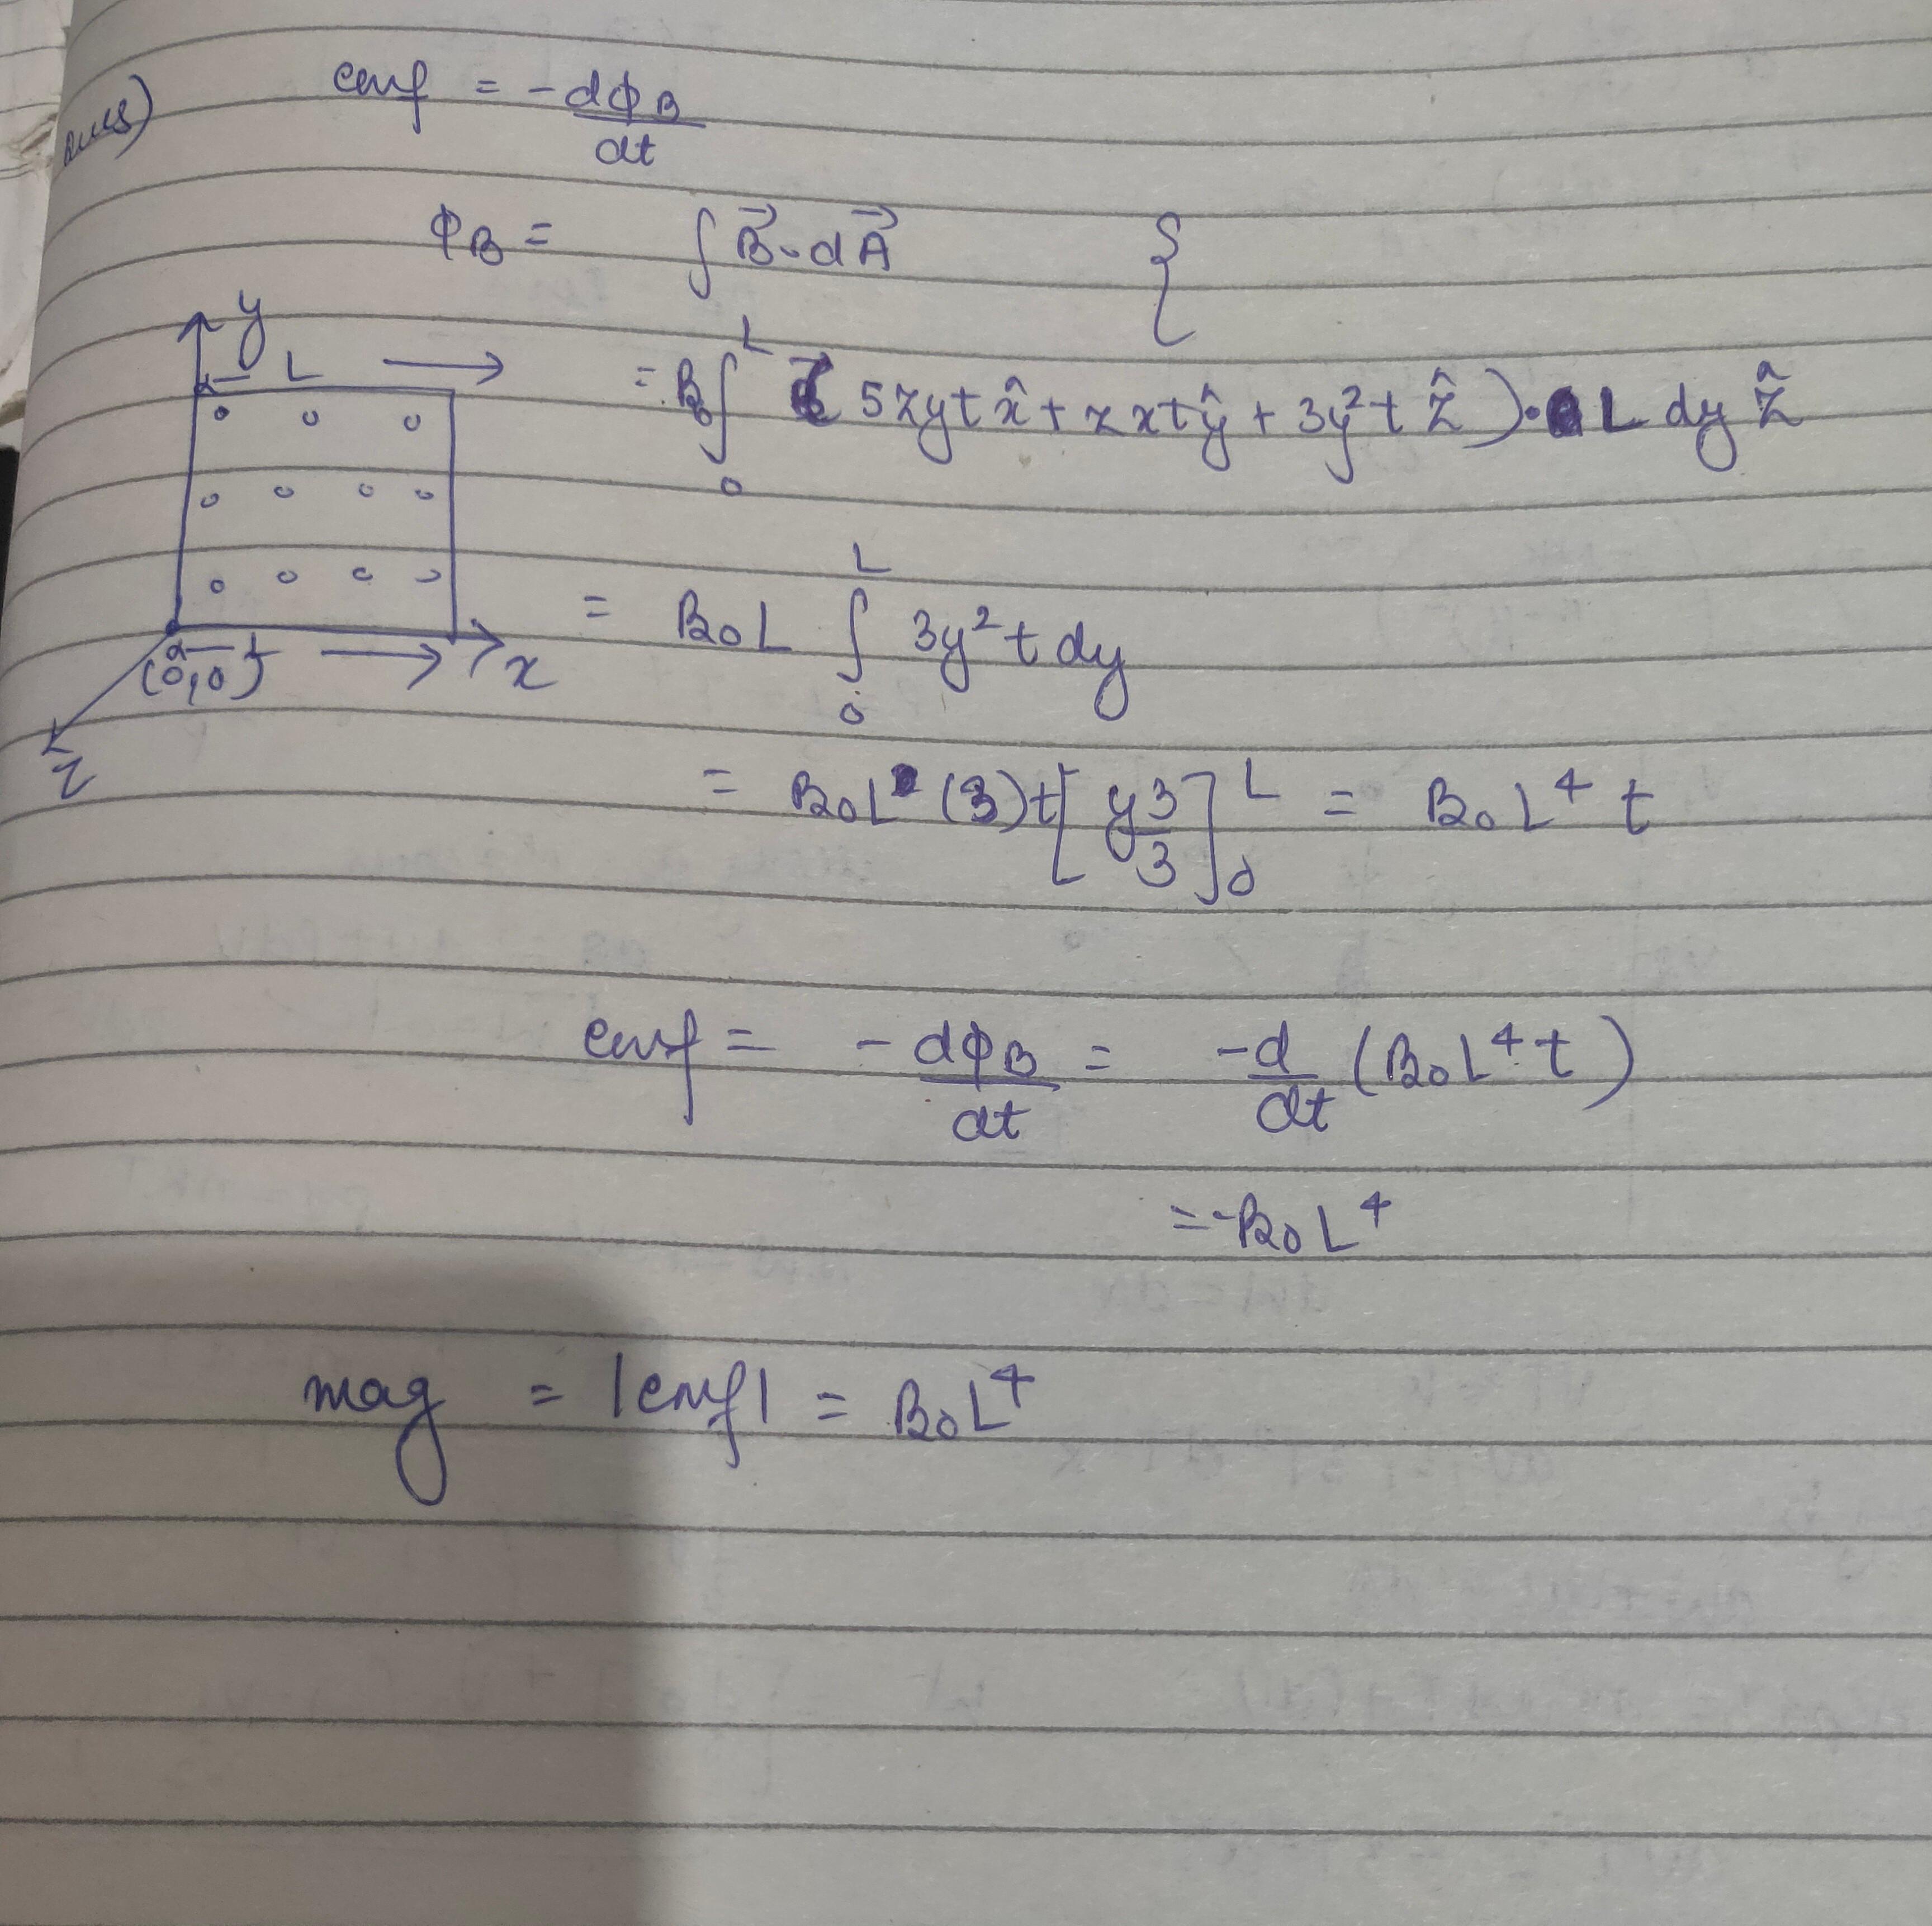 ans) emf = -dφB/dt
φB = ∫ B⃗.dA⃗ {
= B₀∫₀ᴸ ( 5zyt x̂ + zxt ŷ + 3y²t ẑ ). L dy ẑ
y
L
= B₀L ∫₀ᴸ 3y²t dy
(0,0) L x
z
= B₀L (3)t [y3/3]₀ᴸ = B₀L⁴ t
emf = -dφB/dt = -d/dt (B₀L⁴t)
= -B₀L⁴
mag = |emf| = B₀L⁴